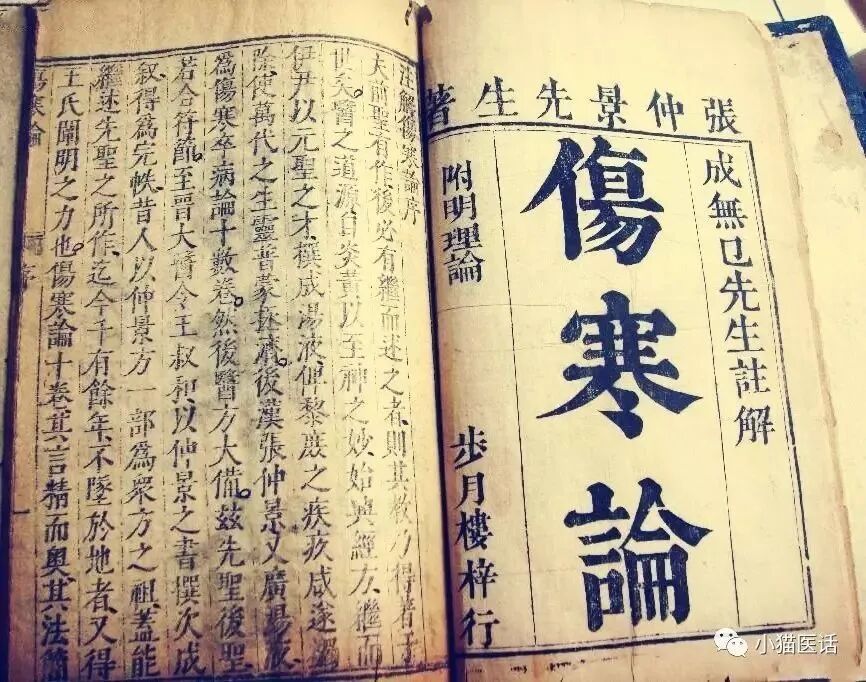 張仲景先生著
成無已先生註解
傷寒論
附明理論
步月樓梓行
注解傷寒論序
夫前聖有作後必有繼而述之者則其教乃得著于
世矣醫之道源自炎黃以至神之妙始興經方繼而
伊尹以元聖之才撰成湯液俾黎庶之疾疢咸遂蠲
除使萬代之生靈普蒙拯濟後漢張仲景又廣湯液
爲傷寒卒病論十數卷然後醫方大備茲先聖後聖
若合符節至晉大醫令王叔和以仲景之書撰次成
叙得爲完帙昔人以仲景方一部爲衆方之祖蓋能
繼述先聖之所作迄今千有餘年不墜於地者又得
王氏闡明之力也傷寒論十卷其言精而奧其法簡
傷寒論
序
小猫医话